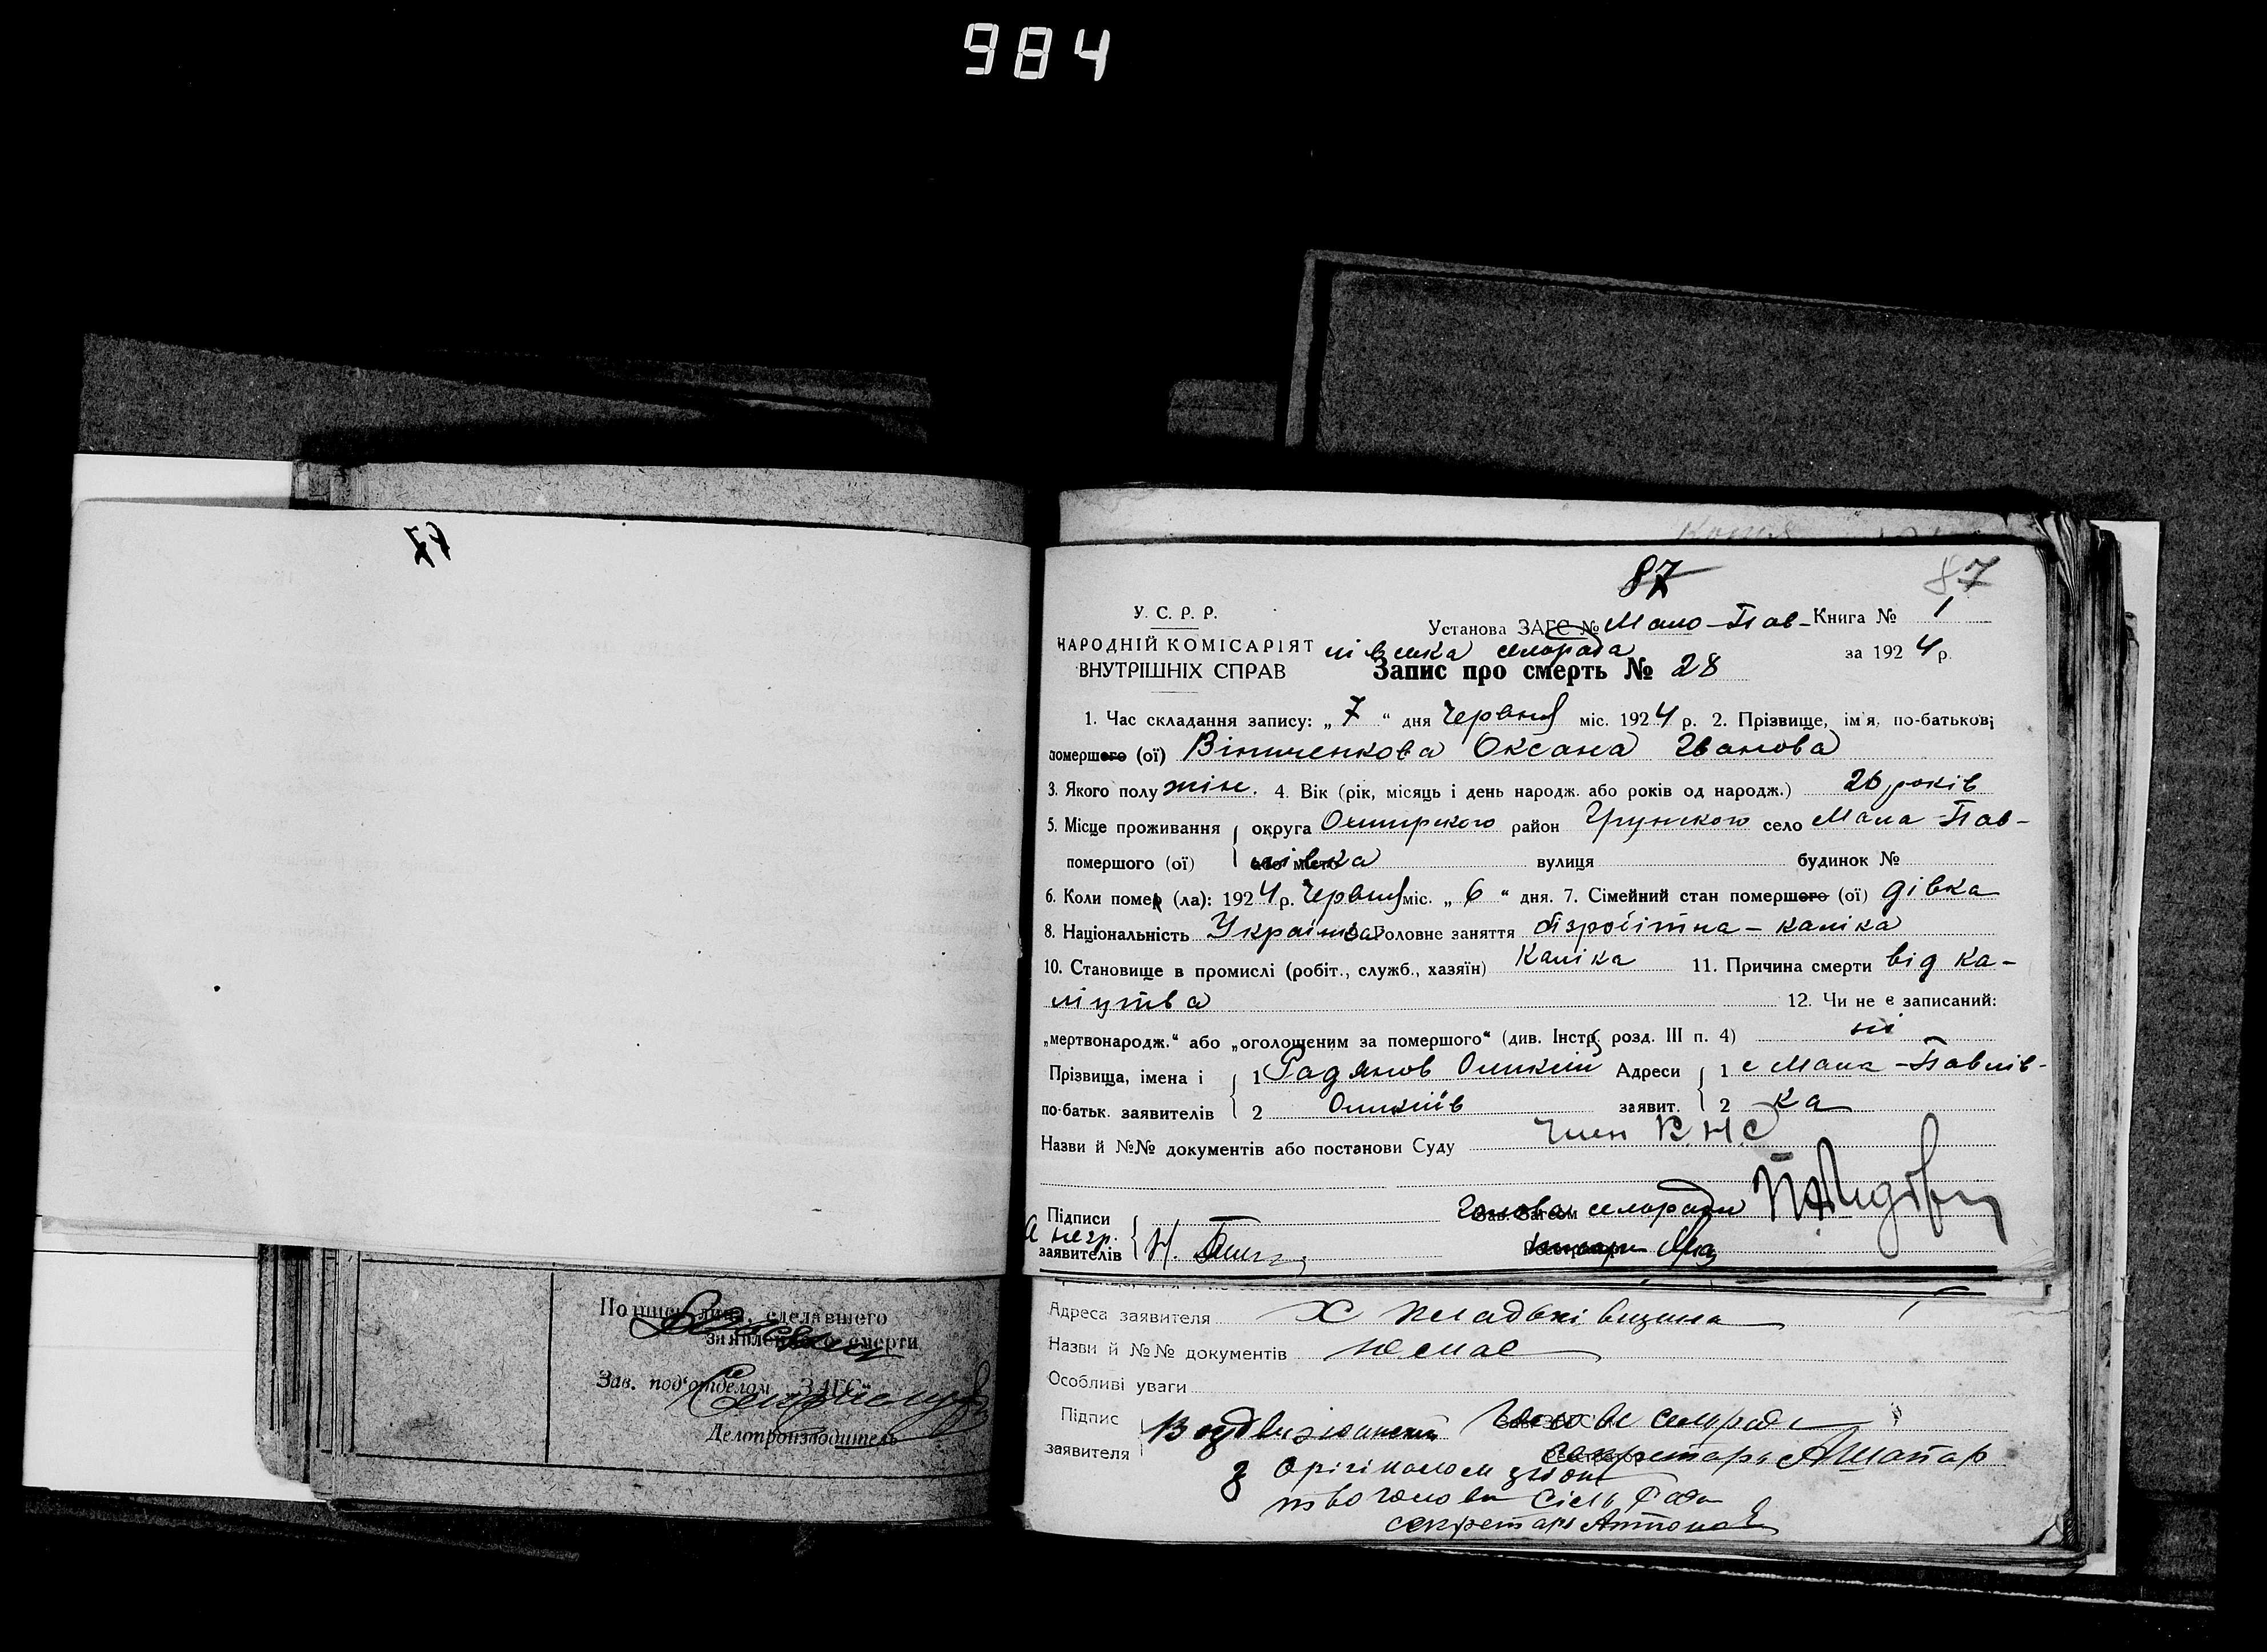 984
87
87
87
У. С. Р. Р.
НАРОДНІЙ КОМІСАРІЯТ
ВНУТРІШНІХ СПРАВ
Установа ЗАГС № Мало-Пав-
лівська сельрада
Книга № 1
за 1924 р.
Запис про смерть № 28
1. Час складання запису: „7“ дня Червня міс. 1924 р. 2. Прізвище, ім'я, по-батькові
помершого (ої) Вініченкова Оксана Іванова
3. Якого полу жін. 4. Вік (рік, місяць і день народж. або років од народж.) 26 років
5. Місце проживання округа Охтирского район Грунського село Мала-Пав-
помершого (ої) або місто лівка вулиця будинок №
6. Коли помер (ла): 1924 р. Червня міс. „6“ дня. 7. Сімейний стан помершого (ої) дівка
8. Національність Українка Головне заняття бізробітна - каліка
10. Становище в промислі (робіт., служб., хазяїн) Каліка 11. Причина смерти від ка-
ліцтва 12. Чи не є записаний:
„мертвонародж.“ або „оголошеним за помершого“ (див. Інстр. розд. III п. 4) ні
Прізвища, імена і 1 Оликій Адреси 1 с Мала-Павлів-
по-батьк. заявителів 2 Оликіїв заявит. 2 ка
Назви й №№ документів або постанови Суду Член К.Н.С
Підписи Зав. Загсом Голова сельради
а негр.
заявителів Н.
Подпись лица, сделавшего
заявление о смерти
Зав. под'отделом „ЗАГС“
Делопроизводитель
Адреса заявителя Х
Назви й №№ документів немає
Особливі уваги
Підпис Голова сельради
заявителя секретарь
З Орігіналом згідно
голова Сіль Ради
секретарь